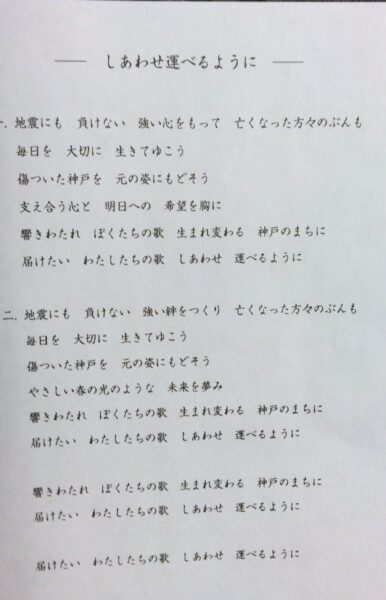 ── しあわせ運べるように ──
一. 地震にも 負けない 強い心をもって 亡くなった方々のぶんも
毎日を 大切に 生きてゆこう
傷ついた神戸を 元の姿にもどそう
支え合う心と 明日への 希望を胸に
響きわたれ ぼくたちの歌 生まれ変わる 神戸のまちに
届けたい わたしたちの歌 しあわせ 運べるように
二. 地震にも 負けない 強い絆をつくり 亡くなった方々のぶんも
毎日を 大切に 生きてゆこう
傷ついた神戸を 元の姿にもどそう
やさしい春の光のような 未来を夢み
響きわたれ ぼくたちの歌 生まれ変わる 神戸のまちに
届けたい わたしたちの歌 しあわせ 運べるように
響きわたれ ぼくたちの歌 生まれ変わる 神戸のまちに
届けたい わたしたちの歌 しあわせ 運べるように
届けたい わたしたちの歌 しあわせ 運べるように